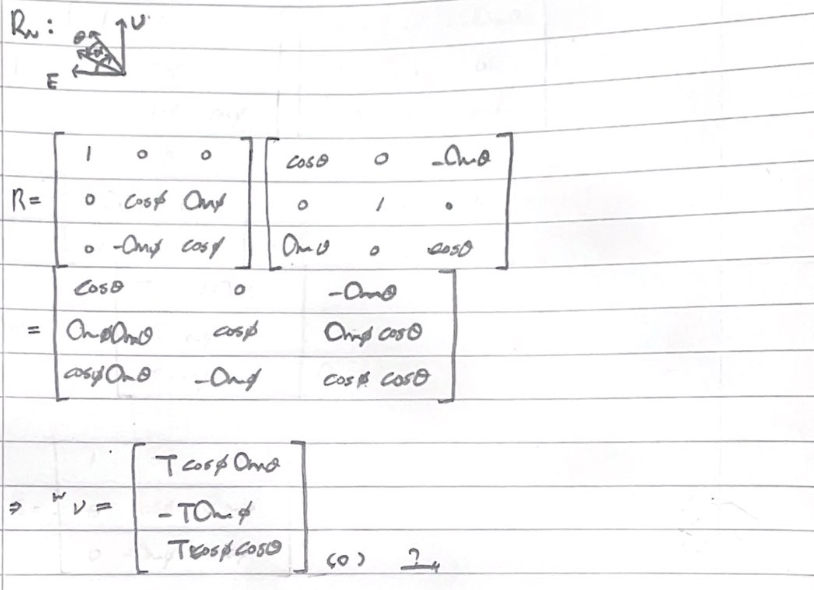 R_N :
θ φ U
E
R = [ 1 0 0 ; 0 cosφ sinφ ; 0 -sinφ cosφ ] [ cosθ 0 -sinθ ; 0 1 0 ; sinθ 0 cosθ ]
= [ cosθ 0 -sinθ ; sinφ sinθ cosφ sinφ cosθ ; cosφ sinθ -sinφ cosφ cosθ ]
⇒ ʷν = [ T cosφ sinθ ; -T sinφ ; T cosφ cosθ ] (0) ?